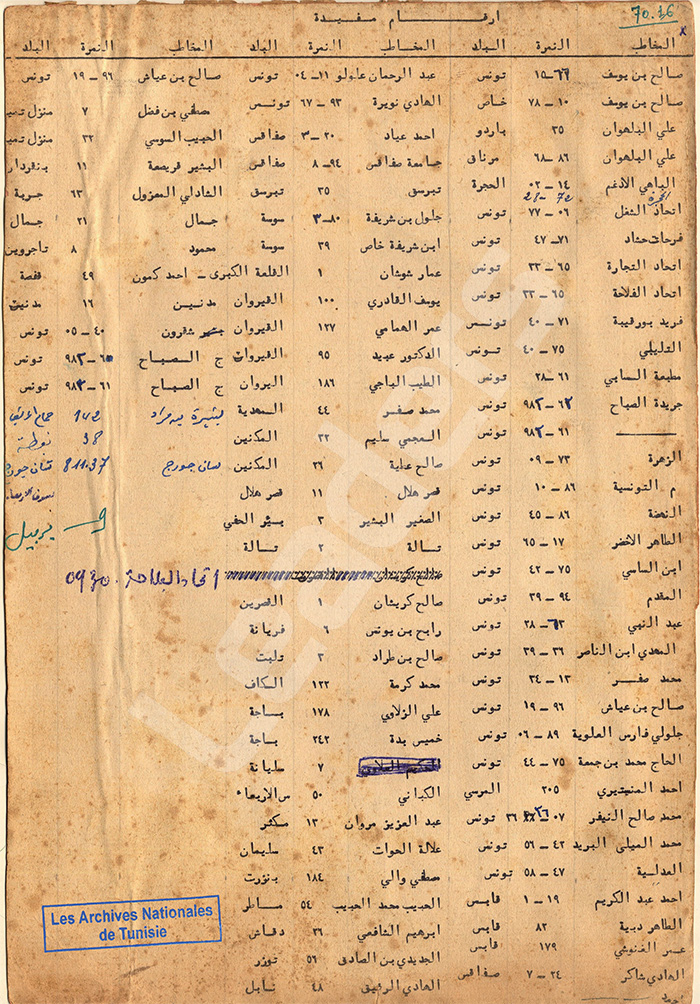 ارقام مفيدة
70.16
المخاطب النمرة البلد المخاطب النمرة البلد المخاطب النمرة البلد
صالح بن يوسف ٦٩–١٥ تونس عبد الرحمان علولو ١١–٠٤ تونس صالح بن عياش ٩٦–١٩ تونس
صالح بن يوسف ١٠–٧٨ خاص الهادي نويرة ٩٣–٦٧ تونس مصطفى بن فضل ٧ منزل
علي البلهوان ٣٥ باردو احمد عياد ٢٠–٣ صفاقس الحبيب السوسي ٣٢ منزل
علي البلهوان ٨٦–٦٨ مرناق جامعة صفاقس ٩٤–٨ صفاقس البشير قريصعة ١١ بنقردان
الباهي الادغم ١٤–٠٢ الحجرة تبرسق ٣٥ تبرسق الشاذلي المعزول ٦٣ جربة
اتحاد الشغل ٠٦–٧٧ تونس جلول بن شريفة ٨٠–٣ سوسة جمال ٢١ جمال
فرحات حشاد ٧١–٤٧ تونس ابن شريفة خاص ٣٩ سوسة محمود ٨ تاجروين
اتحاد التجارة ٦٥–٣٣ تونس عمار شوشان ١ القلعة الكبرى – احمد كمون ٤٩ قفصة
اتحاد الفلاحة ٦٥–٣٣ تونس يوسف القادري ١٠٠ القيروان مدنين ١٦ مدنين
فريد بورقيبة ٧١–٤٠ تونس عمر الهمامي ١٢٧ القيروان شقرون ٤٠–٠٥ تونس
التليلي ٧٥–٤٠ تونس الدكتور عبيد ٩٥ القيروان ج الصباح تونس
مطبعة الساحلي ٦١–٢٨ تونس الطيب الباجي ١٨٦ القيروان ج الصباح تونس
جريدة الصباح تونس محمد صفر ٤٤ المهدية 142
العجمي سليم ٢٢ المكنين 38 نفطة
الزهرة ٧٣–٠٩ تونس صالح عماية ٢٦ المكنين سان جورج 811.37 سان جورج
م التونسية ٨٦–١٠ تونس قصر هلال ١١ قصر هلال
النهضة ٨٦–٤٥ تونس الصغير البشير ٣ بئر الحفي
الطاهر الاخضر ١٧–٦٥ تونس تالة ٢ تالة
ابن الساسي ٧٥–٤٢ تونس اتحاد الفلاحة 0930
المقدم ٩٤–٣٩ تونس صالح كريشان ١ القصرين
عبد النبي ٦٣–٢٨ تونس رابح بن يونس ٦ فريانة
المهدي ابن الناصر ٣٦–٣٩ تونس صالح بن طراد ٣
محمد صفر ١٣–٣٤ تونس محمد كرمة ١٢٢ الكاف
صالح بن عياش ٩٦–١٩ تونس علي الزلاوي ١٧٨ باجة
جلولي فارس العلوية ٨٩–٠٦ تونس خميس بدة ٢٤٢ باجة
الحاج محمد بن جمعة ٧٥–٤٤ تونس ٧ سليانة
احمد المنستيري ٢٠٥ المرسي الكيلاني ٥٠ س الاربعاء
محمد صالح النيفر ٠٧ ٣٦ تونس عبد العزيز مروان ١٣ مكثر
محمد الميلي البريد ٤٢–٥٦ تونس علالة الحوات ٤٣ سليمان
العدالية ٤٧–٥٨ تونس مصطفى والي ١٨٤ بنزرت
احمد عبد الكريم ١٩–١ قابس الحبيب محمد الحبيب ٥٤ ماطر
الطاهر دبية ٨٢ قابس ابرهيم الشافعي ٢٦ دقاش
عمر الغنوشي ١٧٩ قابس الجديدي بن الصادق ٥٦ توزر
الهادي شاكر ٢٤–٧ صفاقس الهادي الرفيق ٤٨ نابل
Les Archives Nationales
de Tunisie
Leaders